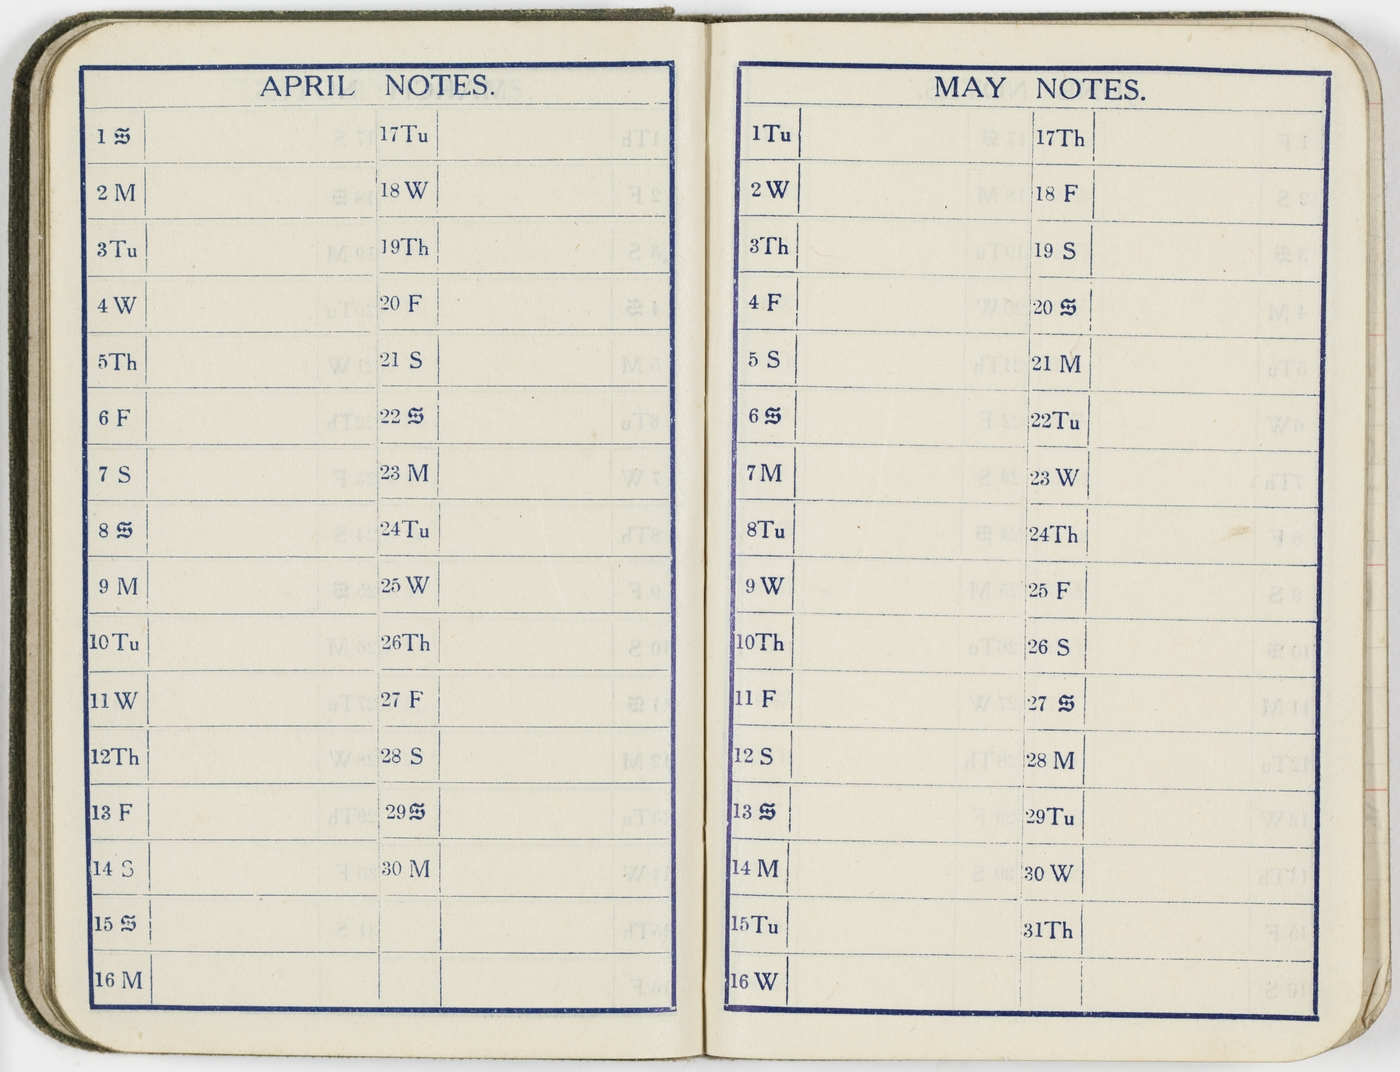 APRIL NOTES.
1 S
2 M
3 Tu
4 W
5 Th
6 F
7 S
8 S
9 M
10 Tu
11 W
12 Th
13 F
14 S
15 S
16 M
17 Tu
18 W
19 Th
20 F
21 S
22 S
23 M
24 Tu
25 W
26 Th
27 F
28 S
29 S
30 M
MAY NOTES.
1 Tu
2 W
3 Th
4 F
5 S
6 S
7 M
8 Tu
9 W
10 Th
11 F
12 S
13 S
14 M
15 Tu
16 W
17 Th
18 F
19 S
20 S
21 M
22 Tu
23 W
24 Th
25 F
26 S
27 S
28 M
29 Tu
30 W
31 Th